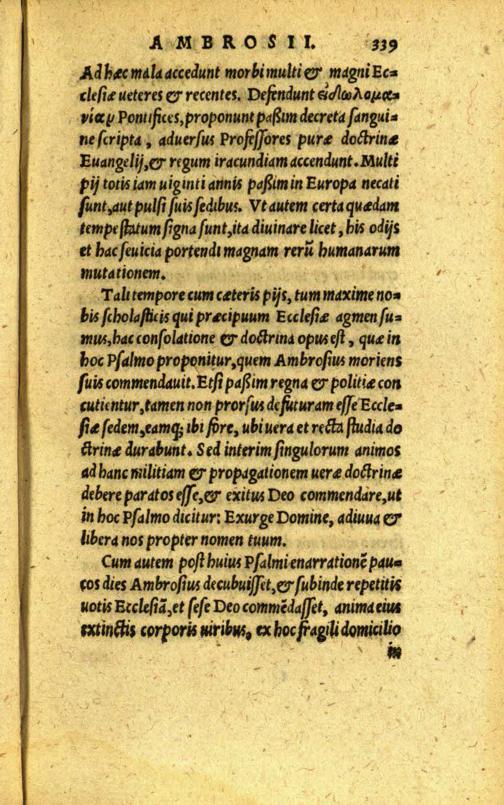 AMBROSII. 339
Ad hæc mala accedunt morbi multi & magni Ec=
clesiæ ueteres & recentes. Defendunt εἰδωλομα=
νίαν Pontifices, proponunt paßim decreta sangui=
ne scripta, aduersus Professores puræ doctrinæ
Euangelij, & regum iracundiam accendunt. Multi
pij totis iam uiginti annis paßim in Europa necati
sunt, aut pulsi suis sedibus. Vt autem certa quædam
tempestatum signa sunt, ita diuinare licet, his odijs
et hac seuicia portendi magnam rerũ humanarum
mutationem.
Tali tempore cum cæteris pijs, tum maxime no=
bis scholasticis qui præcipuum Ecclesiæ agmen su=
mus, hac consolatione & doctrina opus est, quæ in
hoc Psalmo proponitur, quem Ambrosius moriens
suis commendauit. Etsi paßim regna & politiæ con
cutientur, tamen non prorsus defuturam esse Eccle=
siæ sedem, eamq; ibi fore, ubi uera et recta studia do
ctrinæ durabunt. Sed interim singulorum animos
ad hanc militiam & propagationem ueræ doctrinæ
debere paratos esse, & exitus Deo commendare, ut
in hoc Psalmo dicitur: Exurge Domine, adiuua &
libera nos propter nomen tuum.
Cum autem post huius Psalmi enarrationẽ pau=
cos dies Ambrosius decubuisset, & subinde repetitis
uotis Ecclesiã, et sese Deo commẽdasset, anima eius
extinctis corporis uiribus, ex hoc fragili domicilio
in